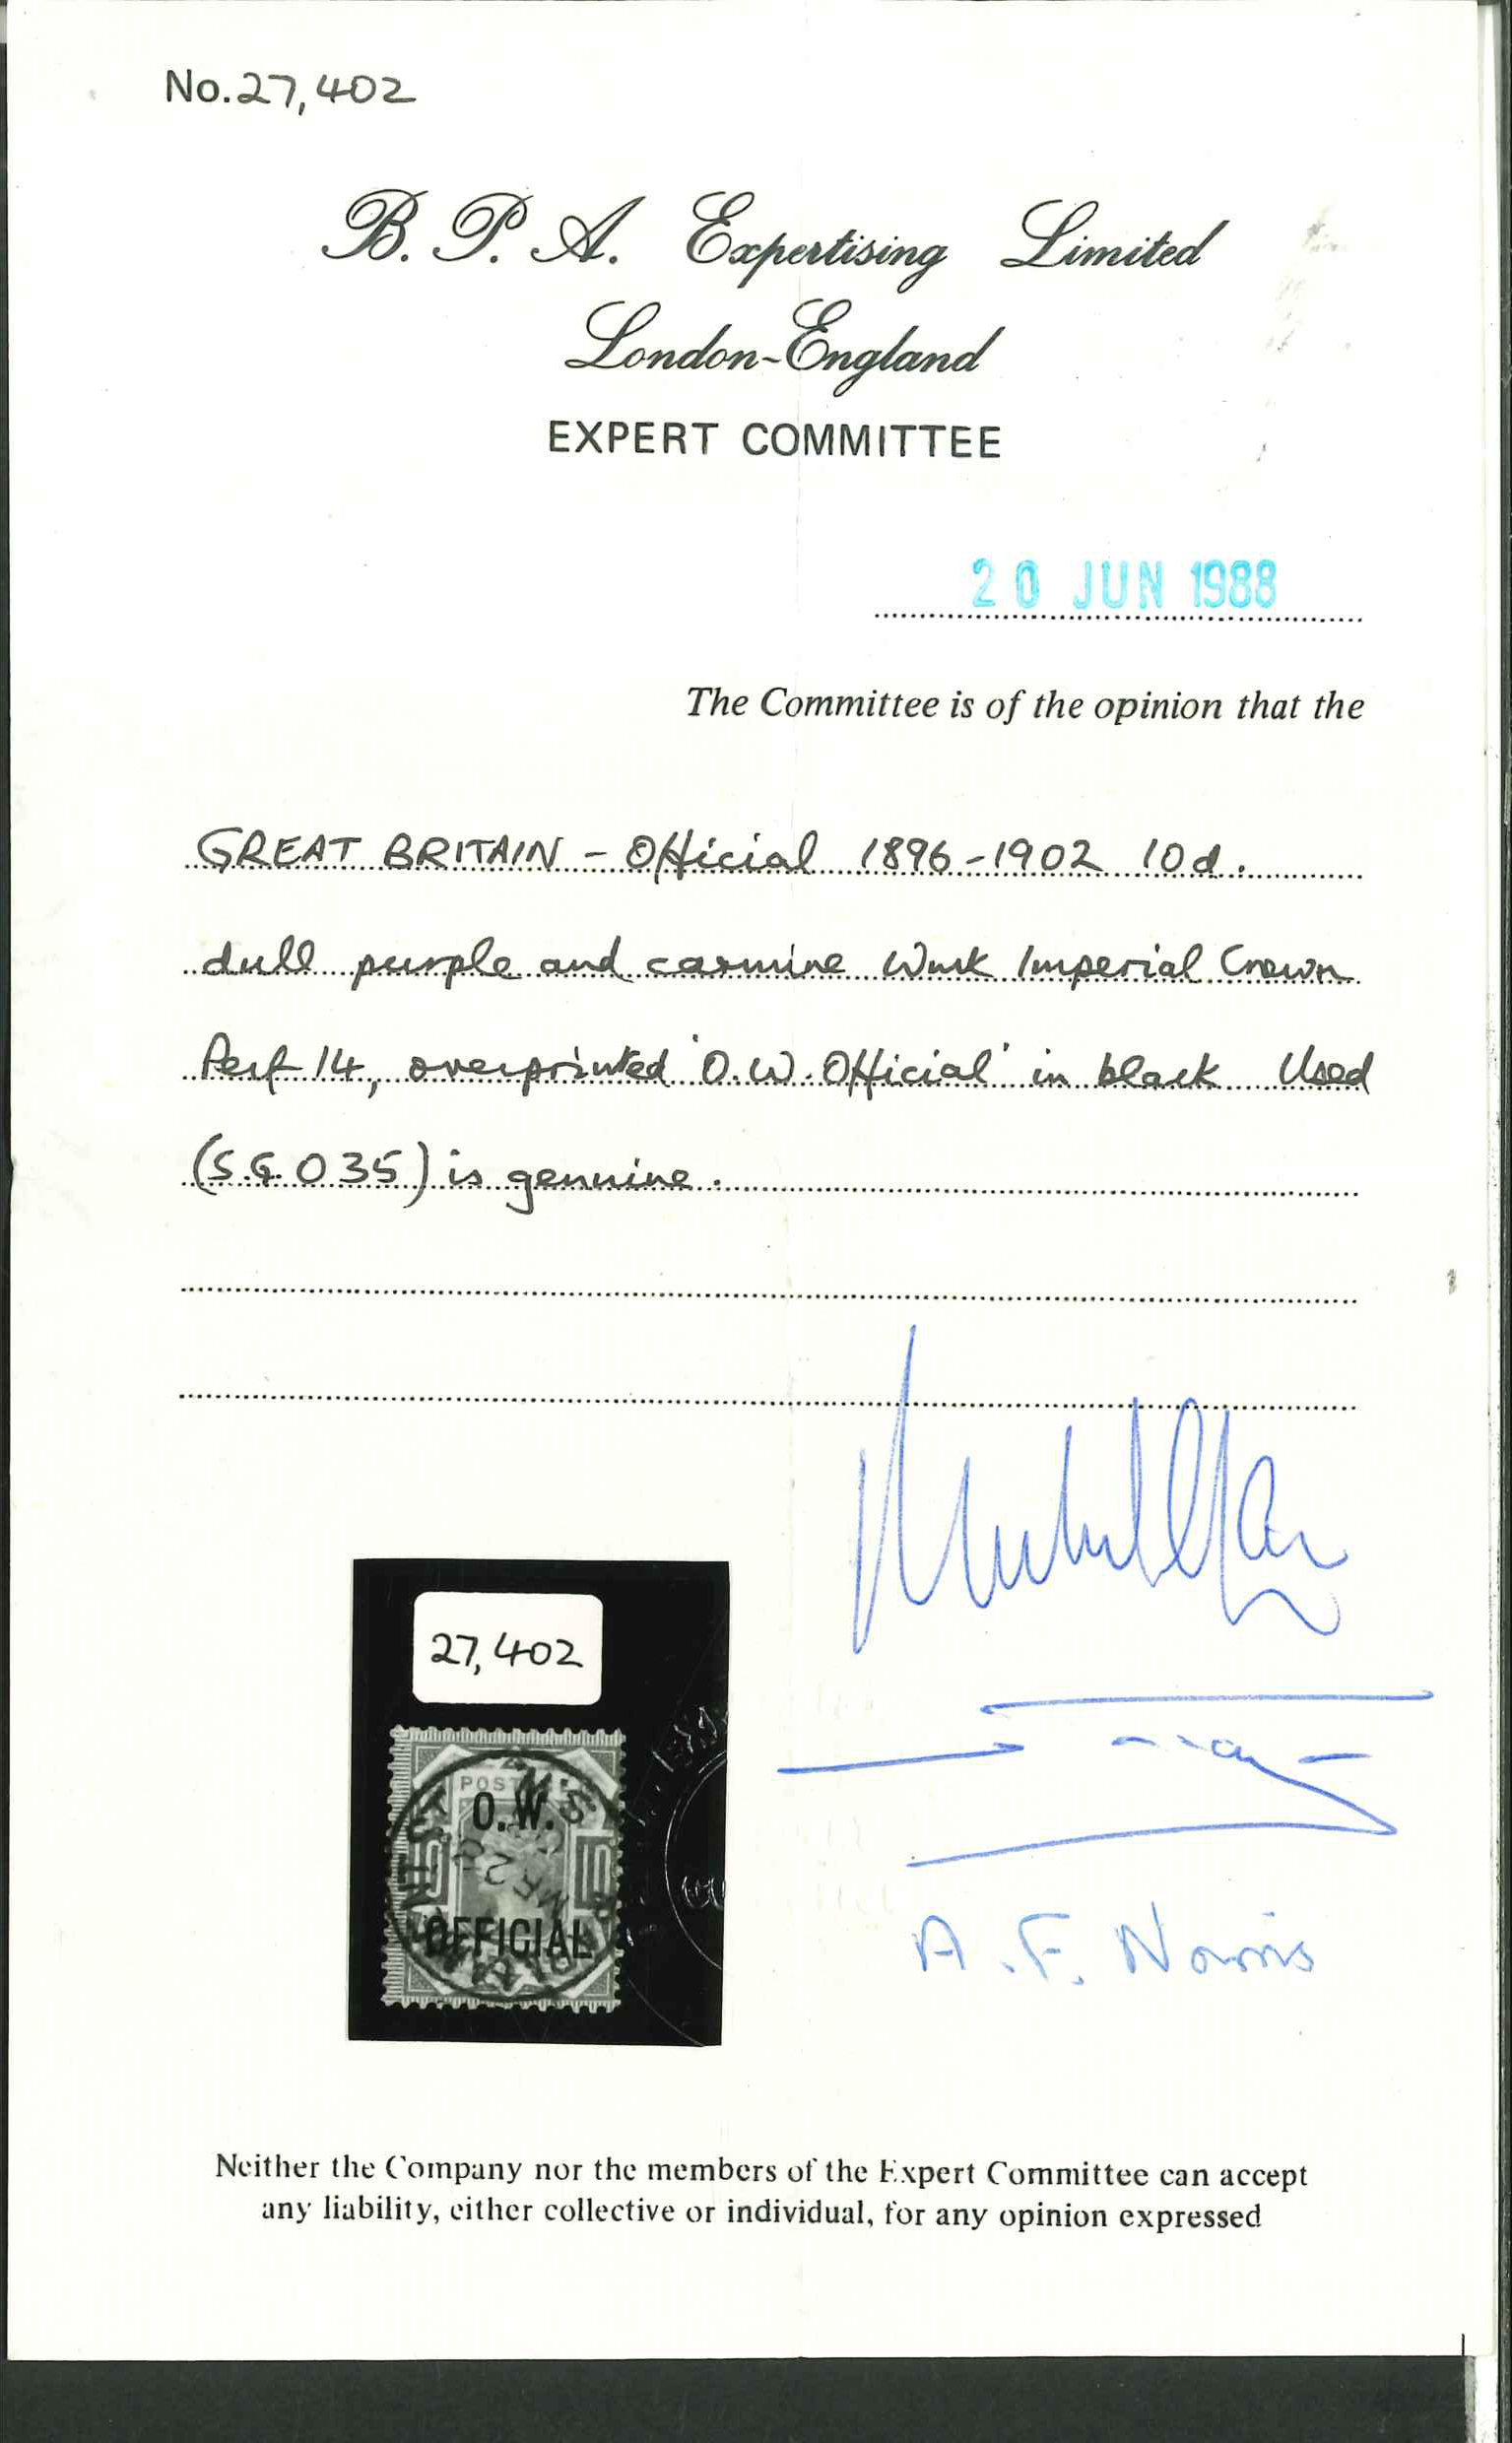 No. 27,402
B. P. A. Expertising Limited
London-England
EXPERT COMMITTEE
20 JUN 1988
The Committee is of the opinion that the
GREAT BRITAIN - Official 1896-1902 10d.
dull purple and carmine Wmk Imperial Crown
Perf 14, overprinted 'O.W. Official' in black Used
(S.G. O35) is genuine.
27,402
O.W.
OFFICIAL
A. F. Norris
Neither the Company nor the members of the Expert Committee can accept
any liability, either collective or individual, for any opinion expressed